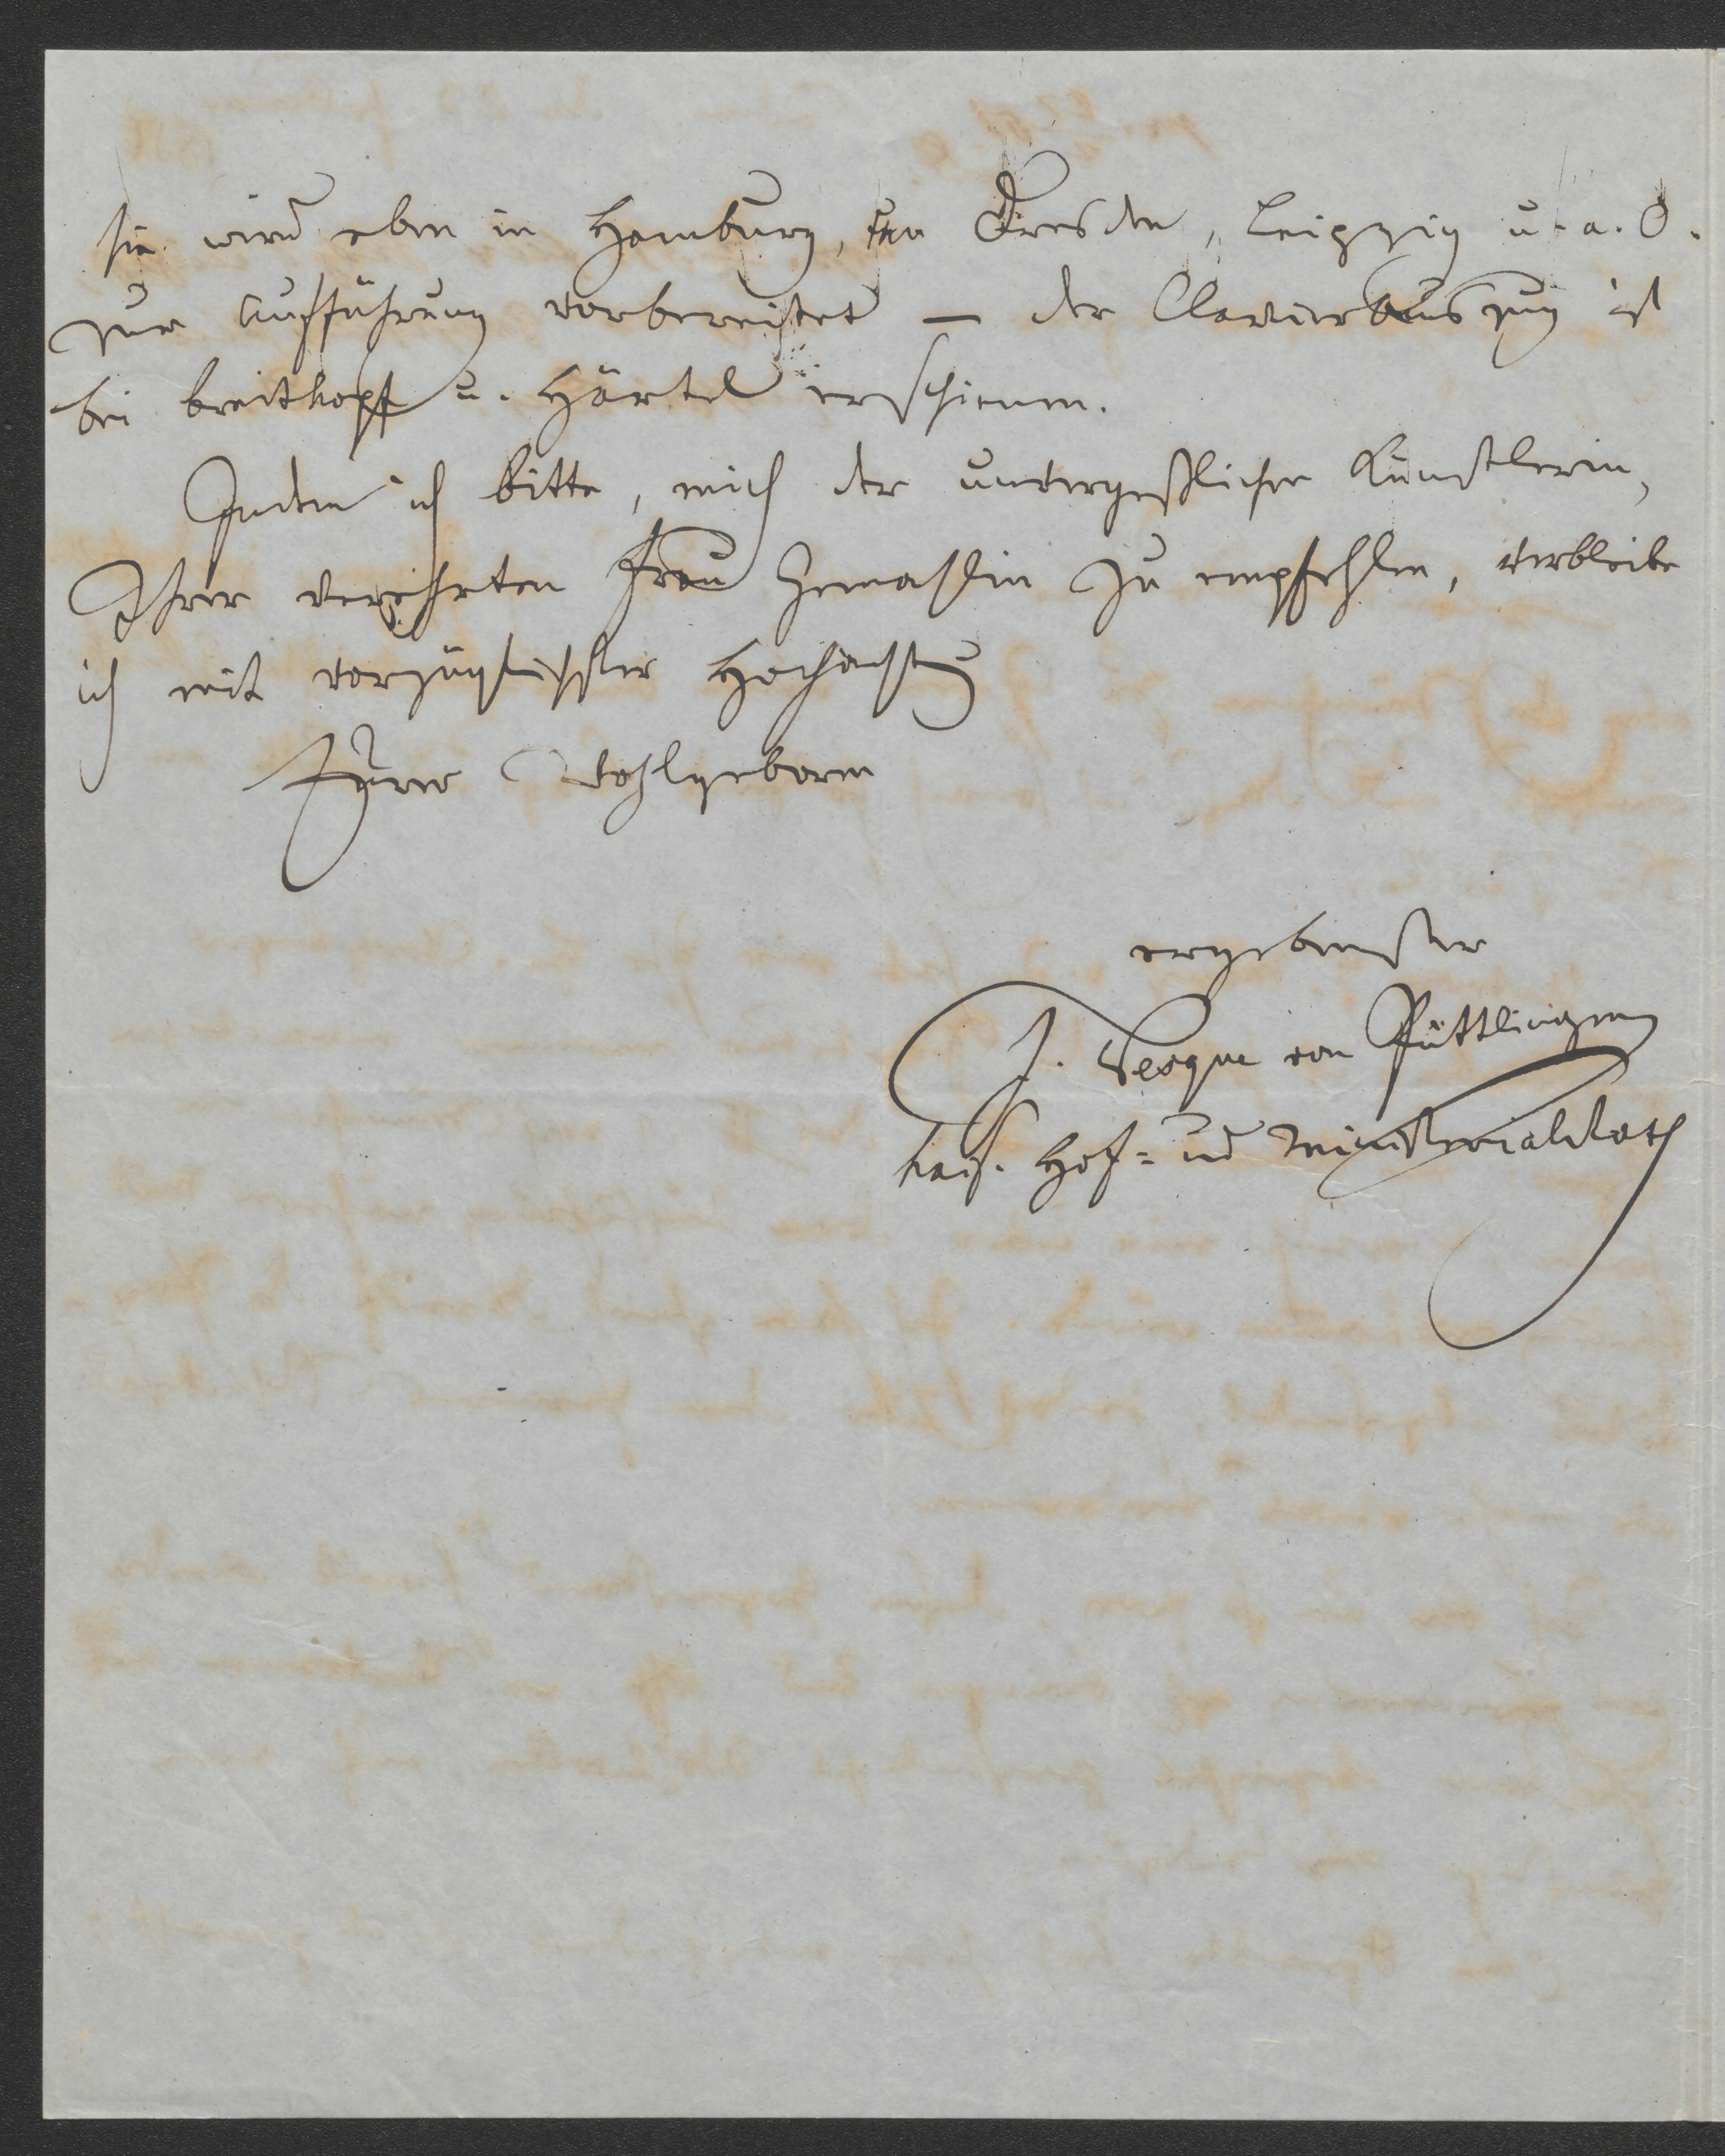 sie wird eben in Hamburg, in Dresden, Leipzig u. a. O.
zur Aufführung vorbereitet — der Clavierauszug ist
bei Breitkopf u. Härtel erschienen.
Indem ich bitte, mich der unvergeßlichen Künstlerin,
Ihrer verehrten Frau Gemahlin zu empfehlen, verbleibe
ich mit vorzüglichster Hochachtung
Euer Wohlgeboren
ergebenster
J. Vesque von Püttlingen
kais. Hof- und Ministerialrath